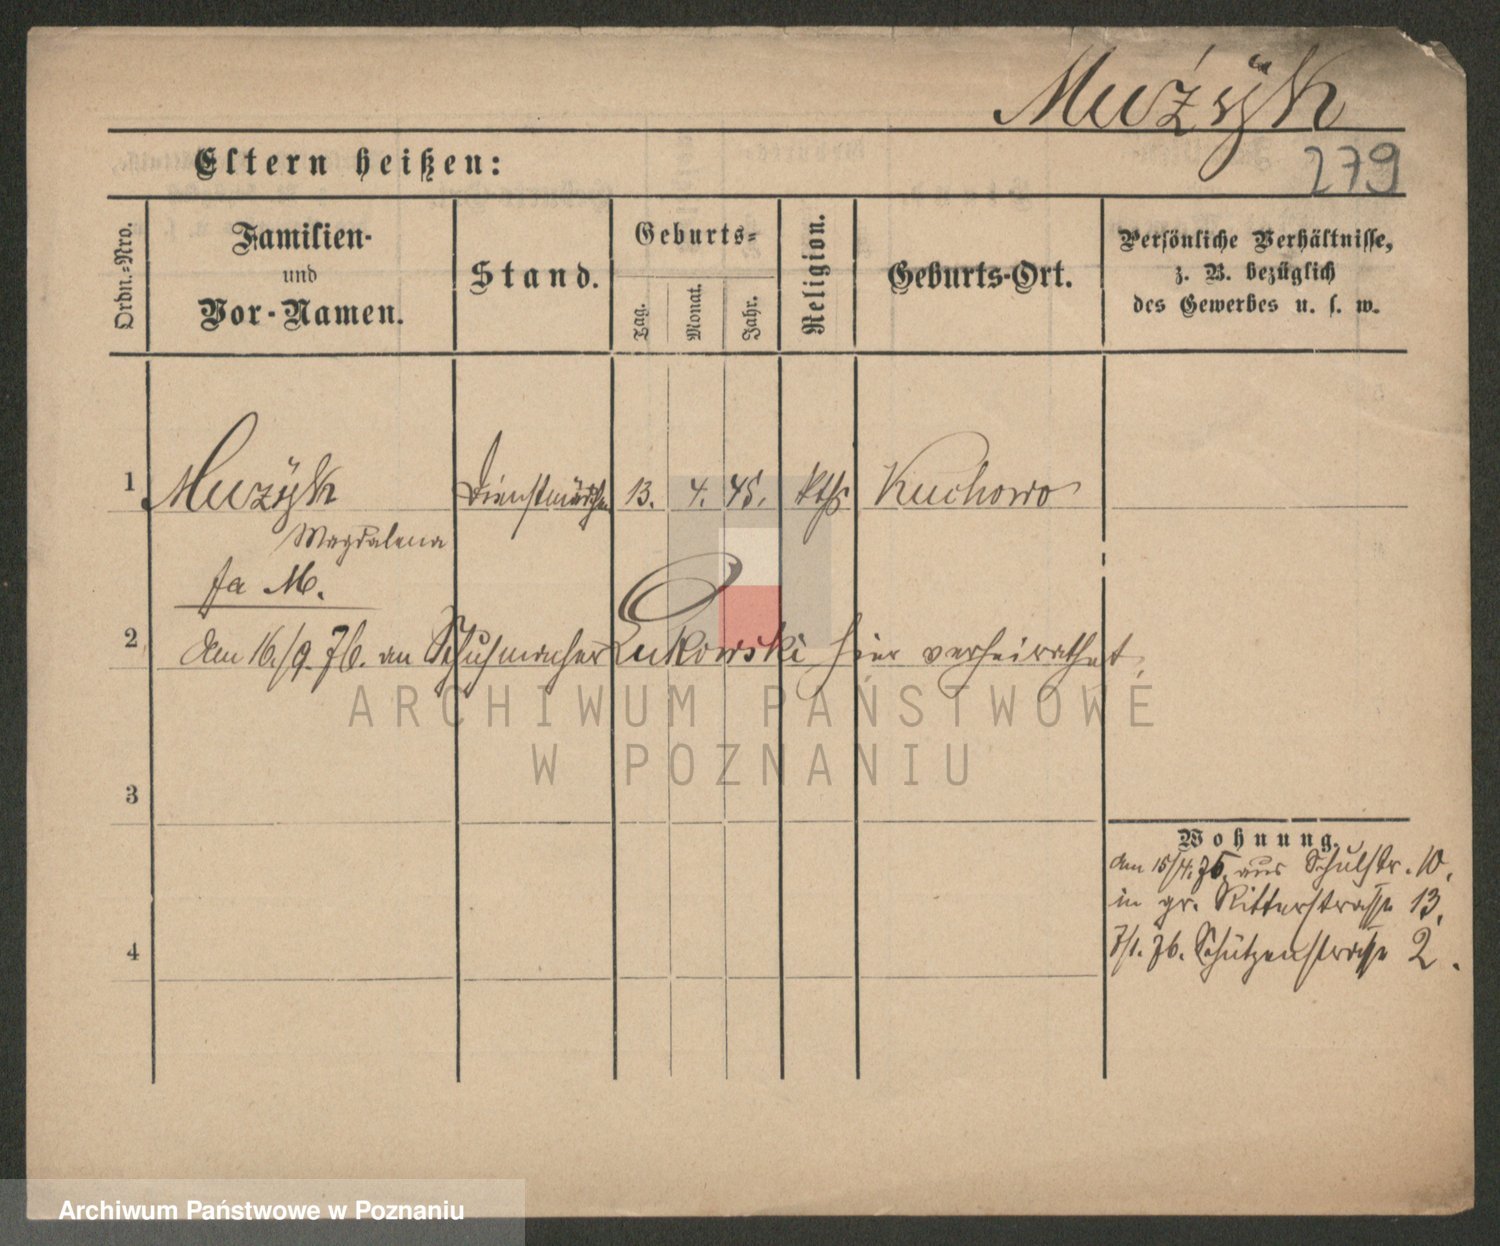 Muzÿk
279
Eltern heißen:
Ordn.=Nro.
Familien-
und
Vor-Namen.
Stand.
Geburts=
Tag.
Monat.
Jahr.
Religion.
Geburts-Ort.
Persönliche Verhältnisse,
z. B. bezüglich
des Gewerbes u. s. w.
1 Muzÿk Dienstmädchen 13. 4. 45. kth. Kuchowo
Magdalena
fa M.
2 Am 16./9. 76. an Schuhmacher Lukowski hier verheirathet.
ARCHIWUM PAŃSTWOWE
W POZNANIU
3
Wohnung.
Am 15/4. 75. aus Schulstr. 10.
in gr. Ritterstrasse 13.
4
7/1. 76. Schützenstrasse 2.
Archiwum Państwowe w Poznaniu